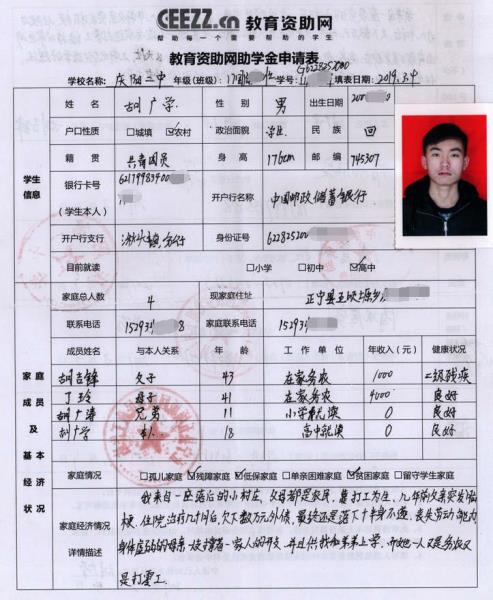 GEEZZ.cn 教育资助网
帮助每一个需要帮助的学生
教育资助网助学金申请表
学校名称: 庆阳三中 年级(班级): 17 学号: 填表日期: 2019.3.4
姓名 胡广学 性别 男 出生日期 200
户口性质 □城镇 ☑农村 政治面貌 民族 回
籍贯 共青团员 身高 176cm 邮编 745307
学生
信息
银行卡号
(学生本人)
62179983900
开户行名称 中国邮政储蓄银行
开户行支行 身份证号 622825200
目前就读 □小学 □初中 ☑高中
家庭总人数 4 现家庭住址 正宁县五顷塬乡
联系电话 15293 8 家庭联系电话 15293
家庭成员及基本经济状况
成员姓名 与本人关系 年龄 工作单位 年收入(元) 健康状况
胡吉锋 父子 43 在家务农 1000 二级残疾
丁玲 母子 41 在家务农 4000 良好
胡广涛 兄弟 11 小学就读 0 良好
胡广学 本人 18 高中就读 0 良好
家庭情况 □孤儿家庭 ☑残障家庭 ☑低保家庭 □单亲困难家庭 ☑贫困家庭 □留守学生家庭
家庭经济情况
详情描述
我来自一座落后的小村庄,父母都是农民,靠打工为生,九年前父亲突发脑
梗,住院治疗几十天后,欠下数万元外债,最终还是落下半身不遂,丧失劳动能力
身体虚弱的母亲一边撑着一家人的开支,并且供我和弟弟上学,
是打零工.